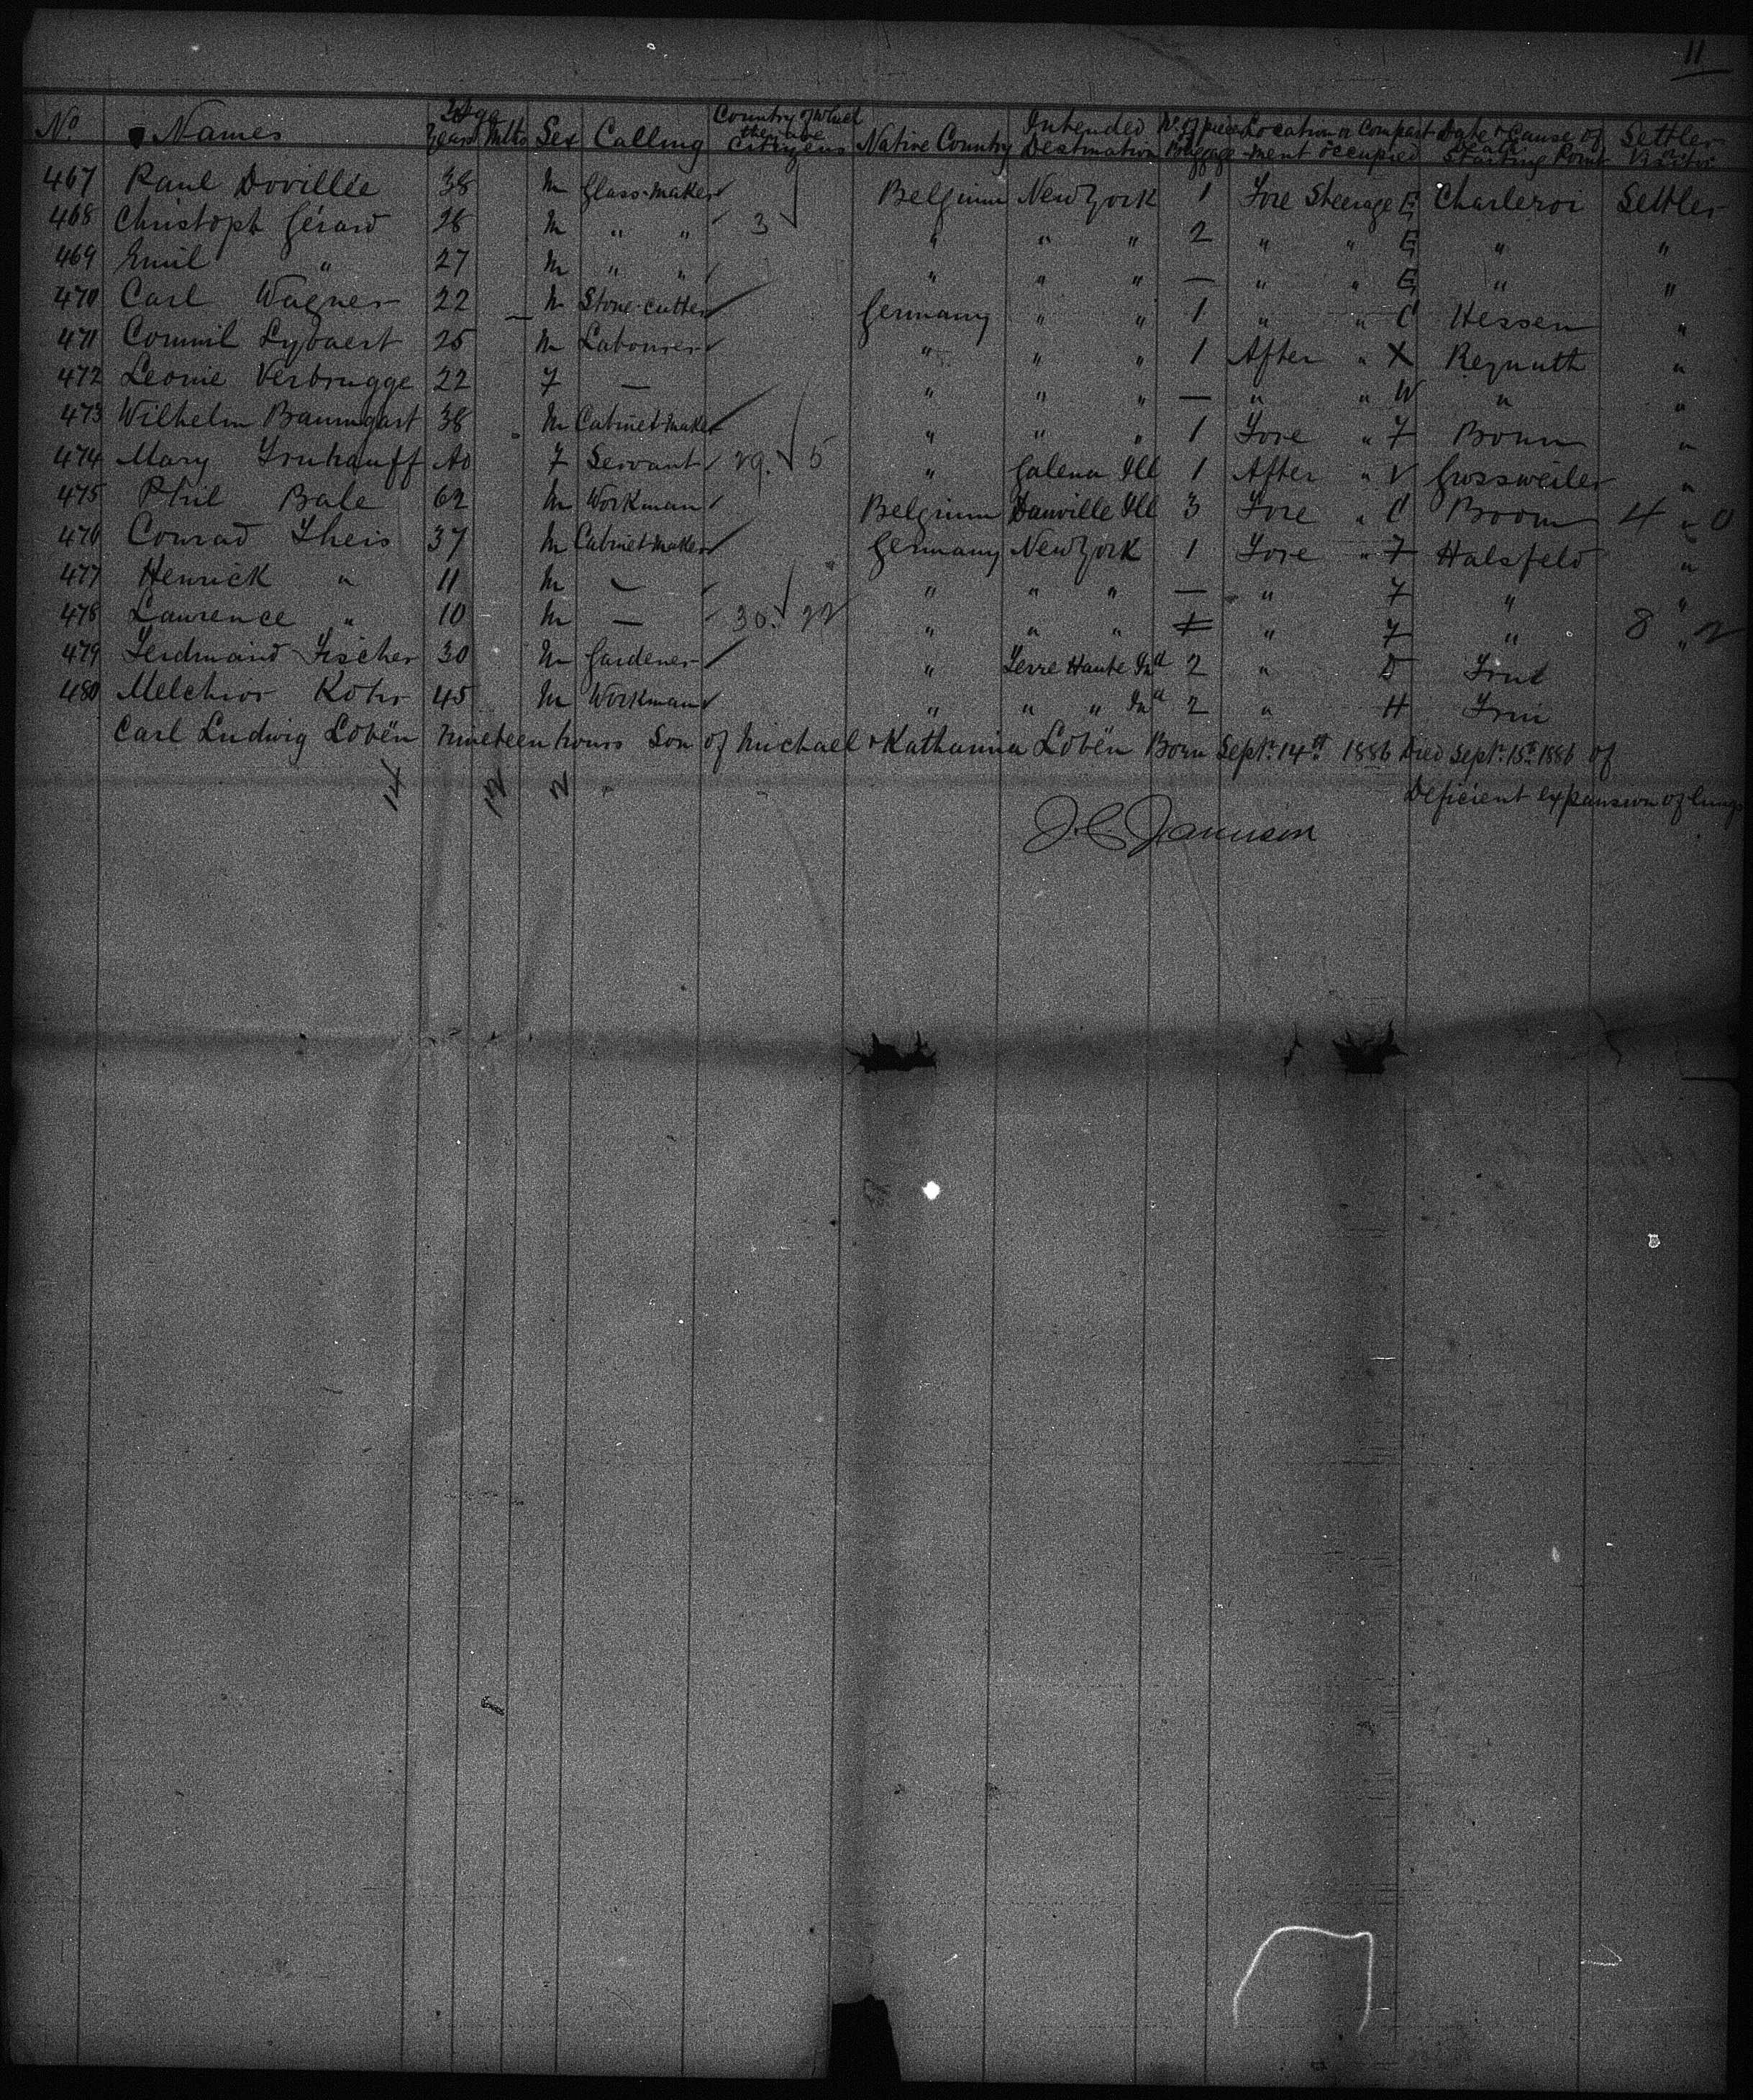 11
No Names Age Years Mths Sex Calling Country of which they are citizens Native Country Intended Destination No. of pieces Baggage Location or Compartment occupied Date & Cause of Death Starting Point Settler Visitor
467 Paul Dovillée 38 M Glass-maker Belgium New York 1 Fore Steerage E Charleroi Settler
468 Christoph Gérard 26 M " " 3 " " " 2 " " E " "
469 Emil " 27 M " " " " " — " " E " "
470 Carl Wagner 22 M Stone-cutter Germany " " 1 " " C Hessen "
471 Commil Lybaert 25 M Labourer " " " 1 After " X "
472 Leonie Verbrugge 22 F — " " " — " " W " "
473 Wilhelm Baumgart 38 M Cabinet-maker " " " 1 Fore " F Bonn "
474 Mary 40 F Servant 29. 5 " Galena Ill 1 After " V Grossweiler "
475 Phil Bale 62 M Workman Belgium Danville Ill 3 Fore " C Boom 4 " 0
476 Conrad Theis 37 M Cabinet-maker Germany New York 1 Fore " F Halsfeld "
477 Henrick " 11 M — " " " — " F " "
478 Lawrence " 10 M — 30. 22 " " " " F " 8 " 2
479 Ferdinand Fischer 30 M Gardener " Terre Haute Ind 2 " D
480 Melchior Kohr 45 M Workman " " " Ind 2 " H
Carl Ludwig Lobën nineteen hours Son of Michael & Katharina Lobën Born Sept. 14th 1886 Died Sept. 15th 1886 of
Deficient expansion of lungs
14 12 2
J. C. Jamison